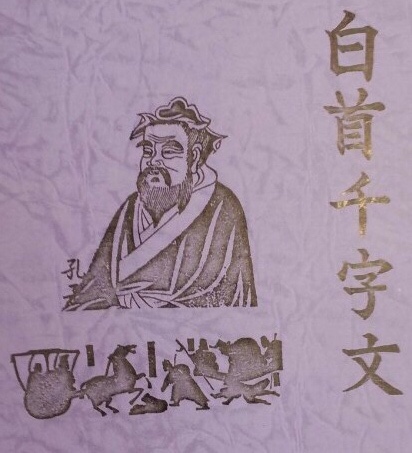 白首千字文
孔子